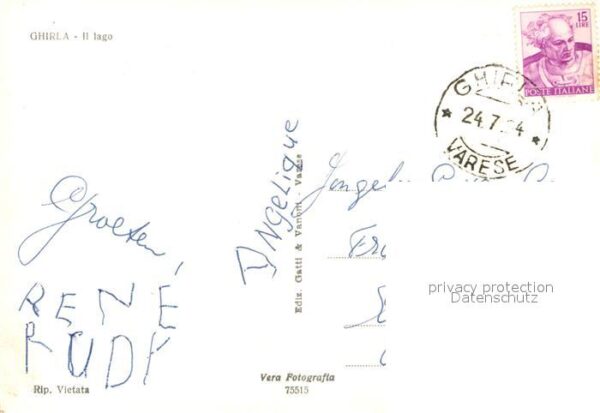 GHIRLA - Il lago
15
LIRE
POSTE ITALIANE
24.7
VARESE
Groeten,
RENÉ
RUDY
Angelique
Ediz. Gatti & Vanoni - Varese
privacy protection
Datenschutz
Rip. Vietata
Vera Fotografia
75515